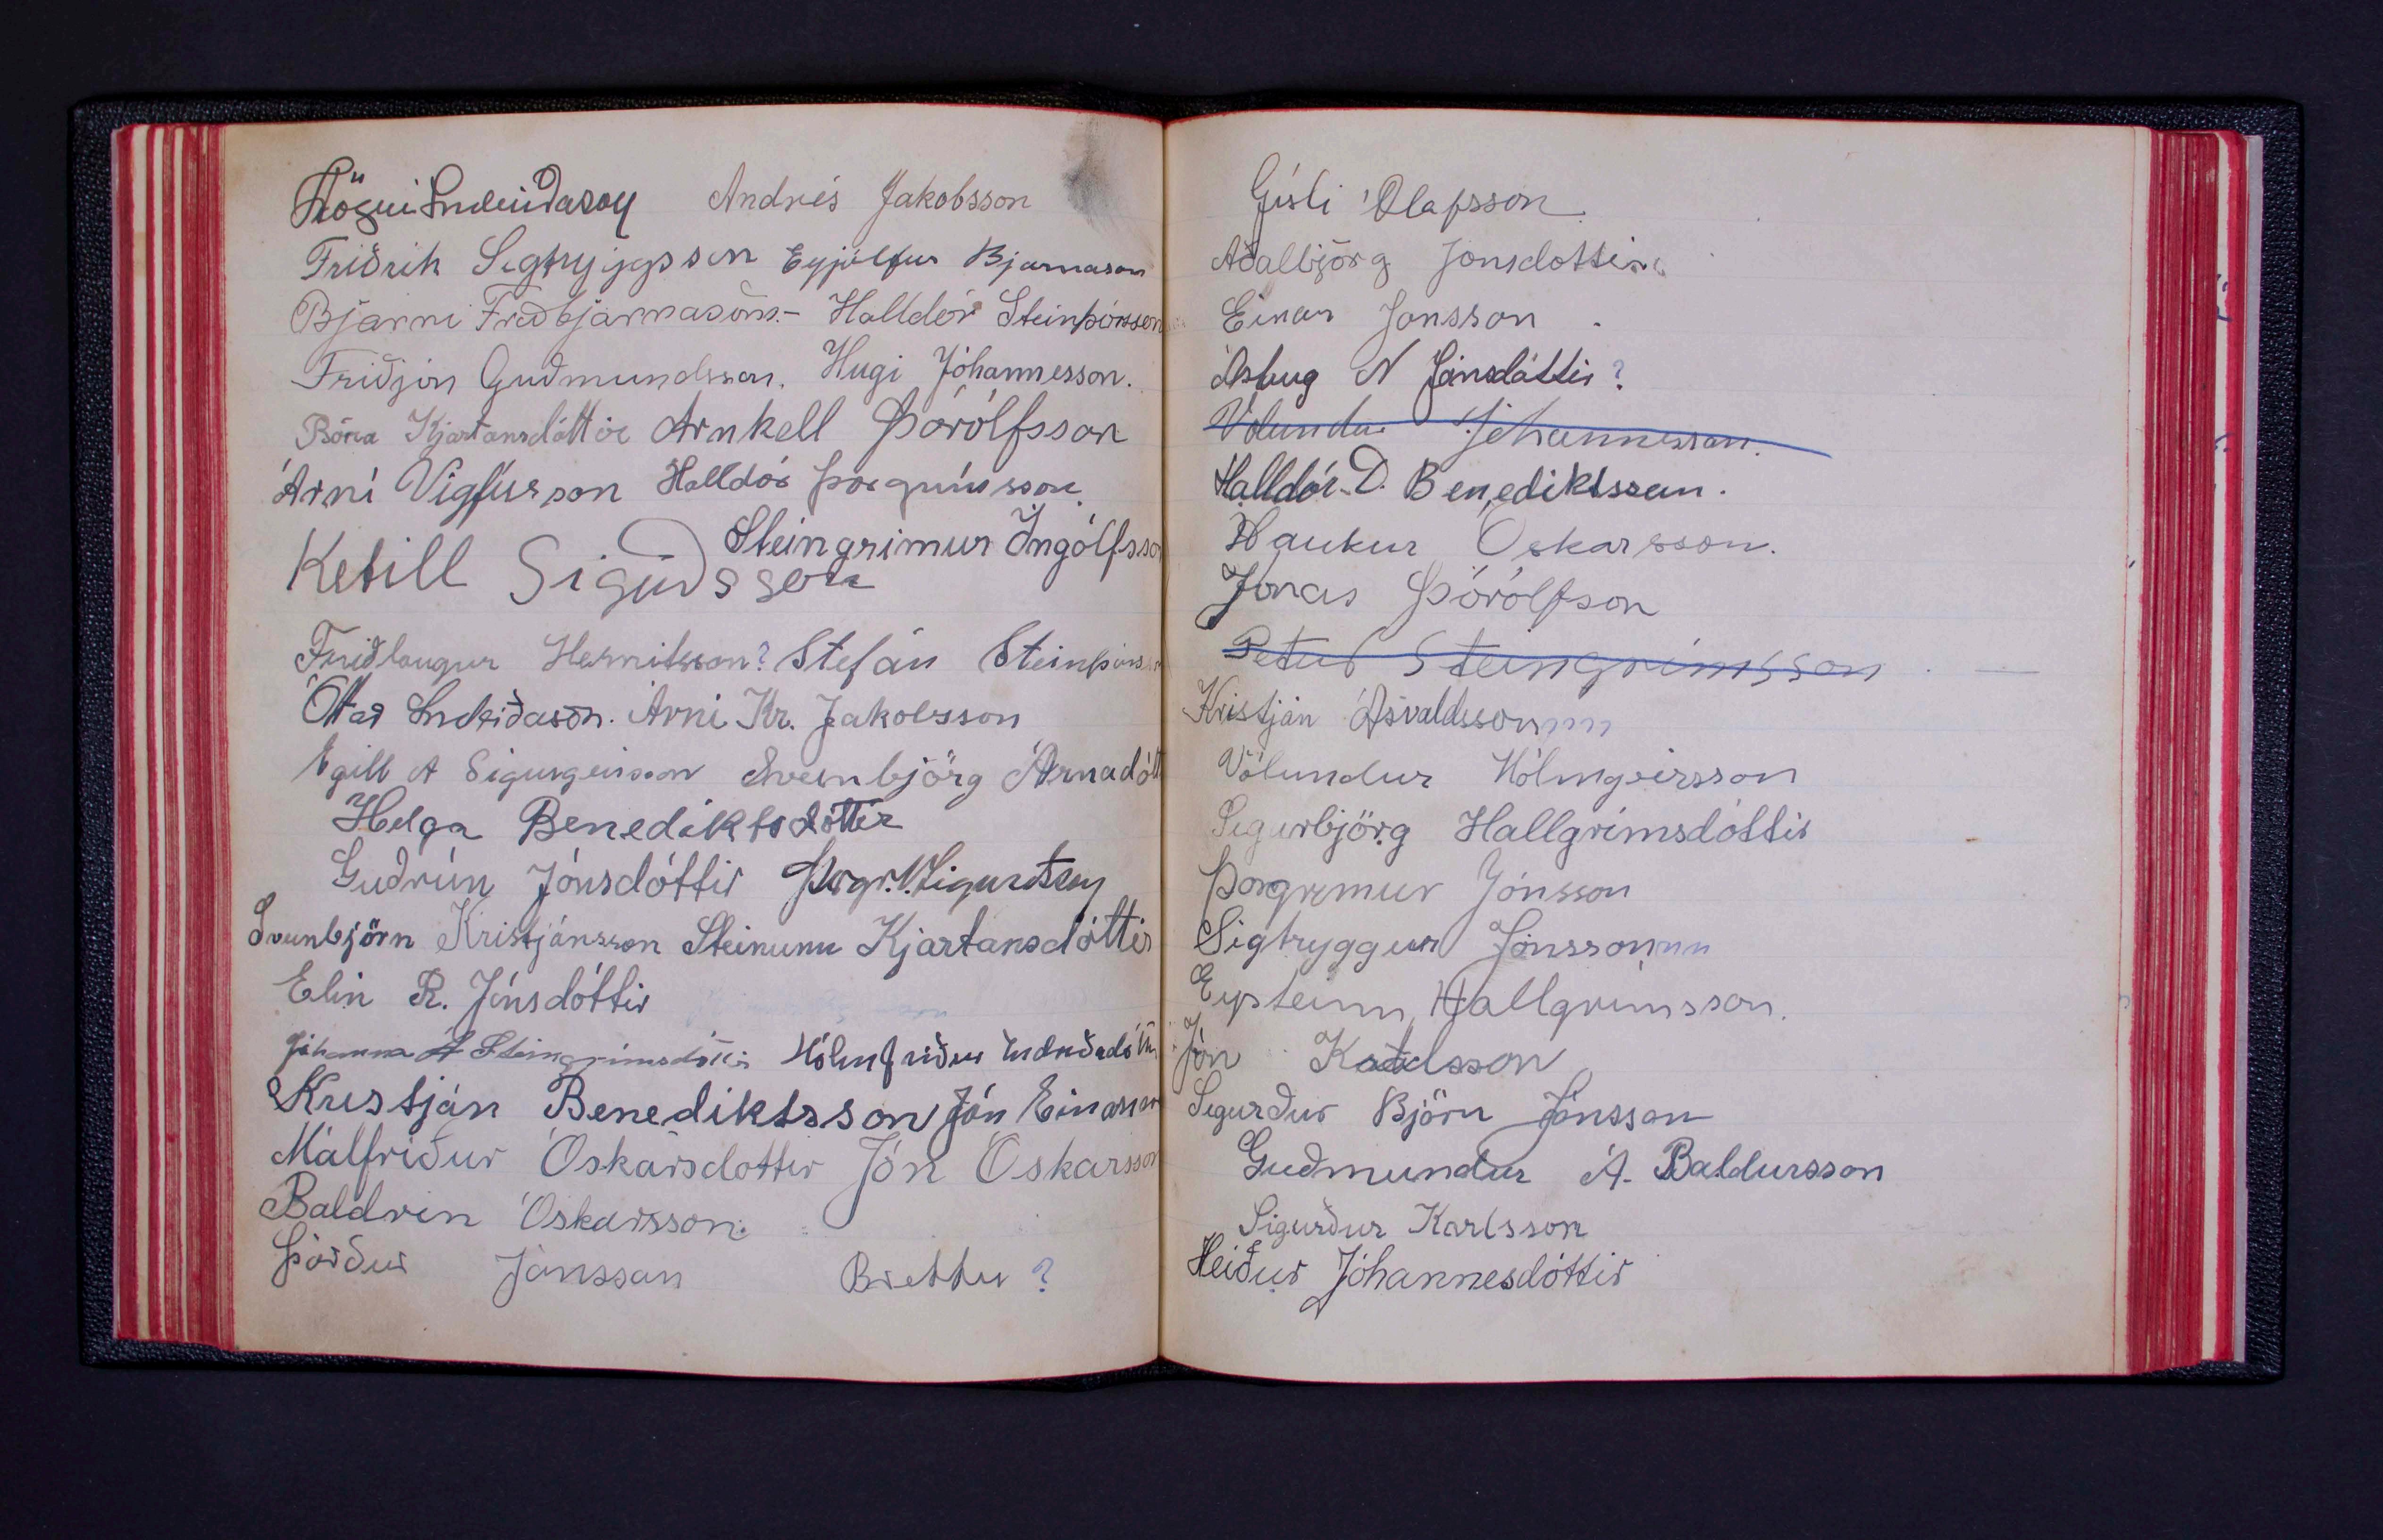 Högni Indriðason Andrés Jakobsson
Friðrik Sigtryggsson Eyjólfur Bjarnason
Bjarni Friðbjarnason.- Halldór Steinþórsson
Friðjón Guðmundsson. Hugi Jóhannesson.
Bára Kjartansdóttir Arnkell Þórólfsson
Árni Vigfússon Halldór Þorgrímsson.
Steingrimur Ingólfsso
Ketill Sigurðsson
Friðlaugur Hermitsson? Stefán Steinþórss
Óttar Indriðason. Árni Kr. Jakobsson
Egill A Sigurgeirsson Sveinbjörg Árnadótt
Helga Benediktsdóttir
Guðrún Jónsdóttir Þorgr. V. Sigurðsson
Sveinbjörn Kristjánsson Steinunn Kjartansdóttir
Elín R. Jónsdóttir
Jóhanna A Steingrímsdóttir Hólmfríður Indriðadóttir
Kristján Benediktsson Jón Einarsson
Málfríður Óskarsdottir Jón Óskarsson
Baldvin Óskarsson.
Þórður Jónsson Brettu ?
Gísli Ólafsson.
Aðalbjörg Jonsdottir.
Einar Jonsson .
Ásbug N Jónsdóttir?
Völundur Jóhannesson.
Halldór D. Benediktsson.
Haukur Óskarsson.
Jónas Þórólfson
Petur Steingrímsson
Kristján Ásvaldssonnn
Völundur Hólmgeirsson
Sigurbjörg Hallgrímsdóttir
Þorgrimur Jónsson
Sigtryggur Jónssonnn
Eysteinn Hallgrímsson.
Jón
Sigurður Björn Jónsson
Guðmundur A. Baldursson
Sigurður Karlsson
Heiður Jóhannesdóttir